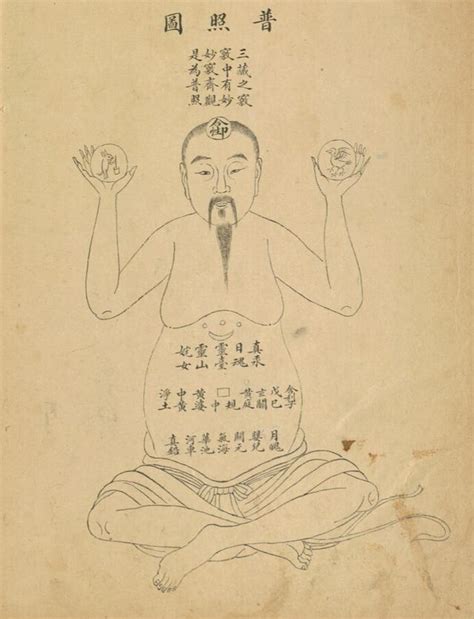 普照圖
三藏之竅
竅中有妙
妙竅齊觀
是為普照
真汞
日魂
靈臺
靈山
姹女
舍利子
戊己
玄關
黃庭
規中
黃婆
中黃
淨土
月魄
嬰兒
關元
氣海
華池
河車
真鉛